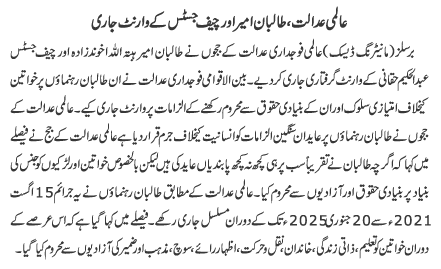 عالمی عدالت، طالبان امیر اور چیف جسٹس کے وارنٹ جاری
برسلز (مانیٹرنگ ڈیسک) عالمی فوجداری عدالت کے ججوں نے طالبان امیر ہبتہ اللہ اخوندزادہ اور چیف جسٹس
عبدالحکیم حقانی کے وارنٹ گرفتاری جاری کر دیے۔ بین الاقوامی فوجداری عدالت نے ان طالبان رہنماؤں پر خواتین
کیخلاف امتیازی سلوک اور ان کے بنیادی حقوق سے محروم رکھنے کے الزامات پر وارنٹ جاری کیے۔ عالمی عدالت کے
ججوں نے طالبان رہنماؤں پر عاید ان سنگین الزامات کو انسانیت کیخلاف جرم قرار دیا ہے عالمی عدالت کے جج نے فیصلے
میں کہا کہ اگرچہ طالبان نے تقریباً سب پر ہی کچھ نہ کچھ پابندیاں عاید کی ہیں لیکن بالخصوص خواتین اور لڑکیوں کو جنس کی
بنیاد پر بنیادی حقوق اور آزادیوں سے محروم کیا۔ عالمی عدالت کے مطابق طالبان رہنماؤں نے یہ جرائم 15 اگست
2021ء سے 20 جنوری 2025ء تک کے دوران مسلسل جاری رکھے۔ فیصلے میں کہا گیا ہے کہ اس عرصے کے
دوران خواتین کو تعلیم، ذاتی زندگی، خاندان، نقل و حرکت، اظہار رائے، سوچ، مذہب اور ضمیر کی آزادیوں سے محروم کیا گیا۔